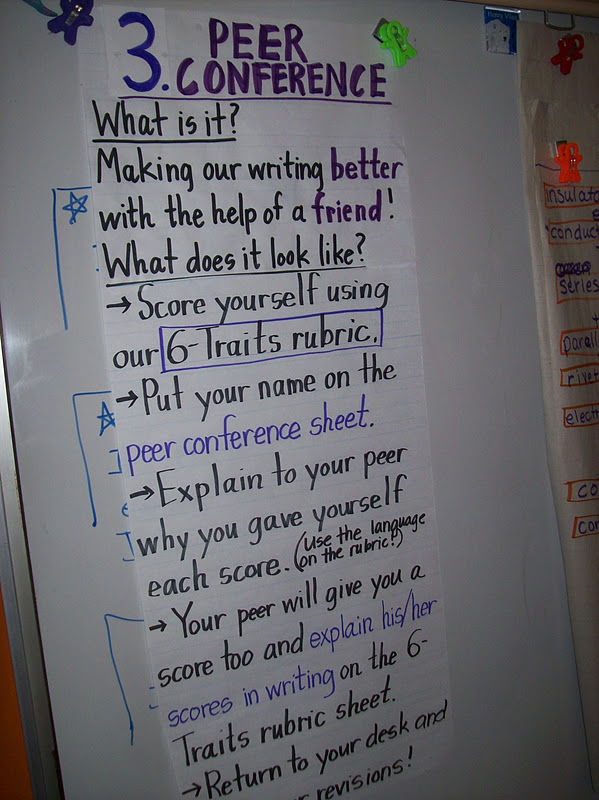 3. PEER
CONFERENCE
What is it?
Making our writing better
with the help of a friend!
What does it look like?
→Score yourself using
our 6-Traits rubric.
→Put your name on the
peer conference sheet.
→Explain to your peer
why you gave yourself
each score. (Use the language
on the rubric!)
→Your peer will give you a
score too and explain his/her
scores in writing on the 6-
Traits rubric sheet.
→Return to your desk and
revisions!
series